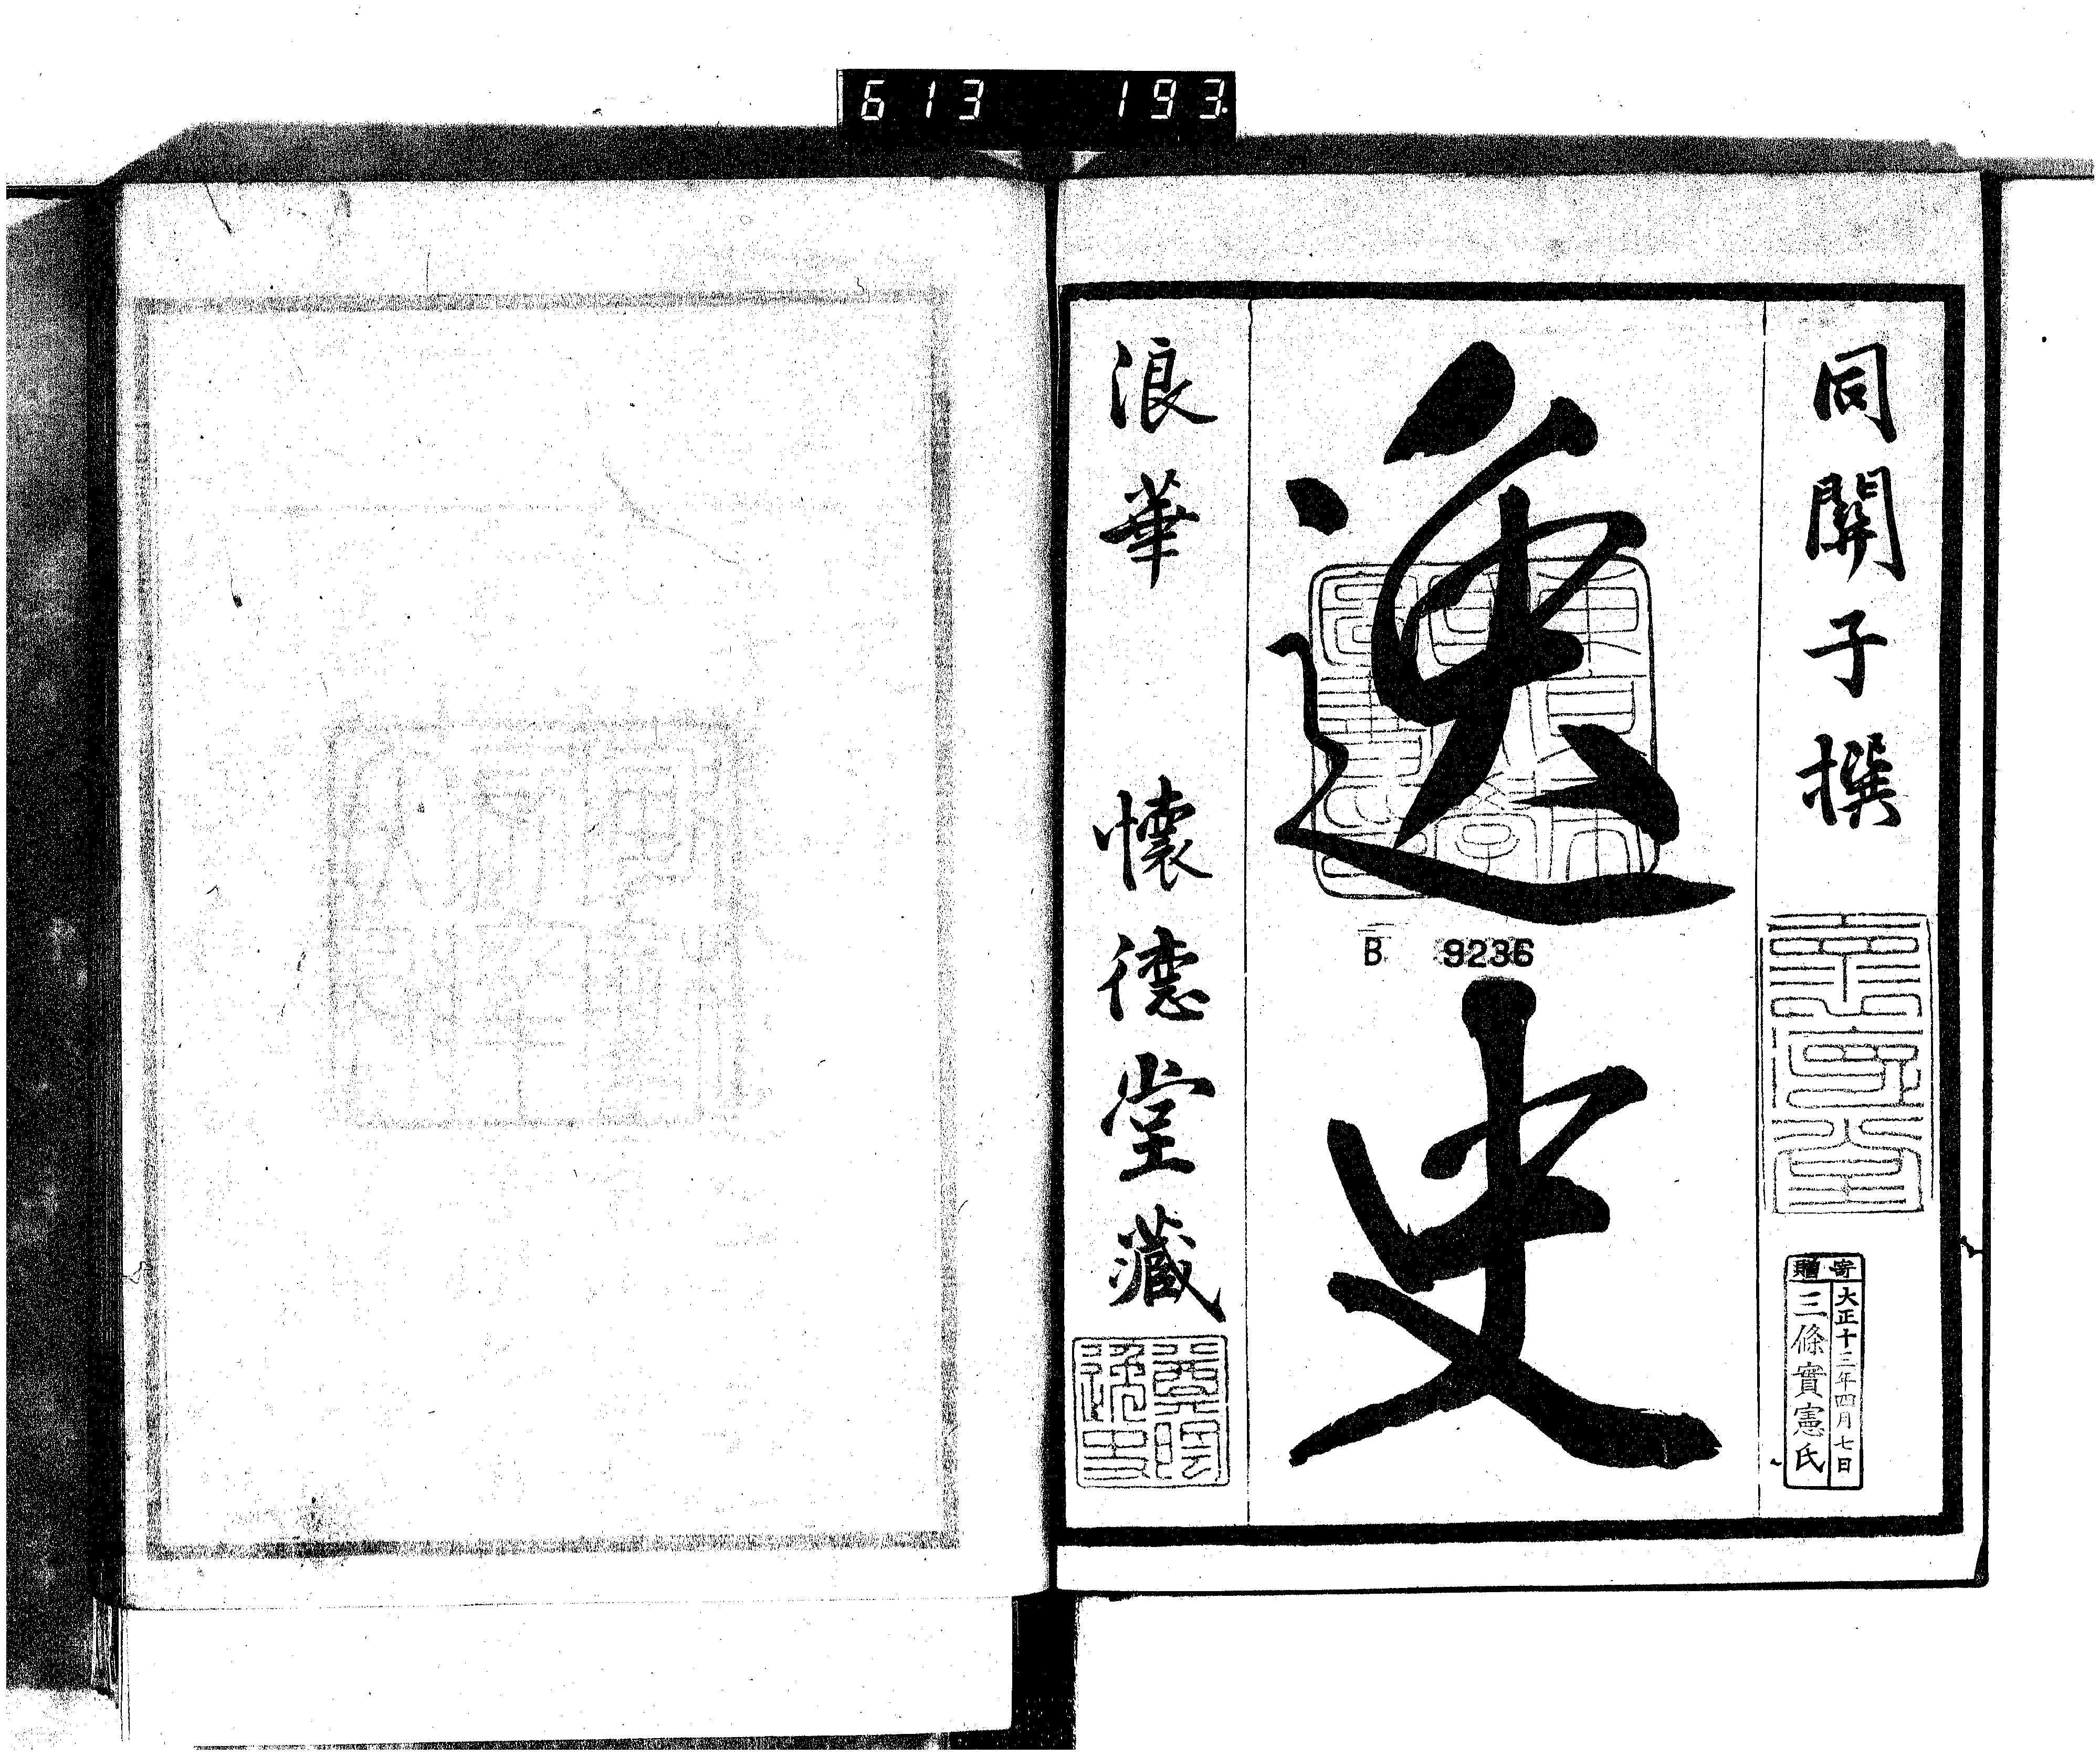 613 193
同關子撰
逸史
浪華 懷德堂藏
奠陰
逸史
B 9236
寄贈
大正十三年四月七日
三條實憲氏